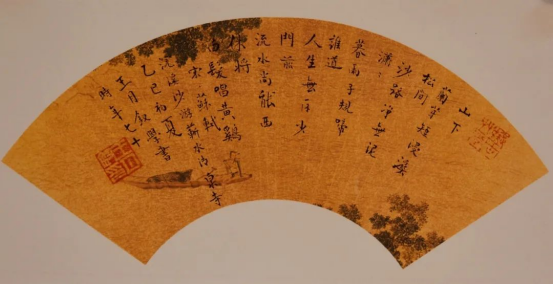 山下
蘭芽短浸溪
松間
沙路淨無泥
瀟瀟
暮雨子規啼
誰道
人生無再少
門前
流水尚能西
休將
白髮唱黃雞
宋蘇軾
浣溪沙游蘄水清泉寺
乙巳初夏學書
王月叙
時年七十